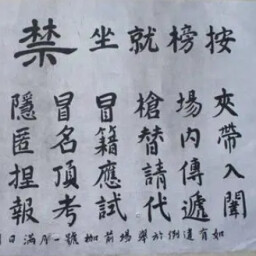 按榜就坐
禁
夾帶入闈
場內傳遞
槍替請代
冒籍應試
冒名頂考
隱匿捏報
如有違例於舉場前枷號一月滿日